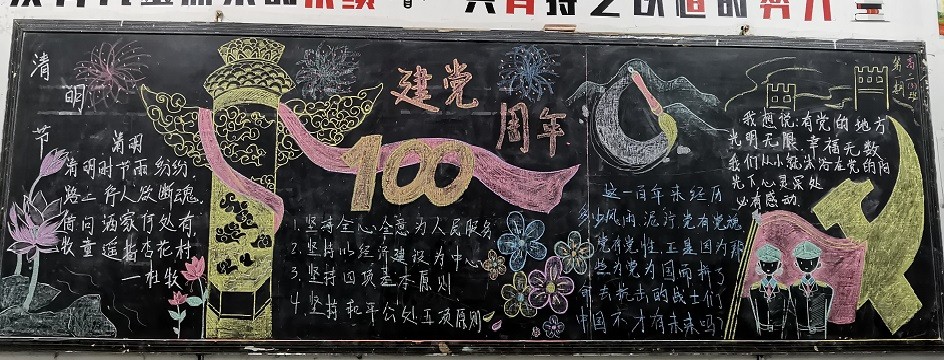 清
明
节
清明
清明时节雨纷纷,
路上行人欲断魂.
借问酒家何处有,
牧童遥指杏花村
——杜牧
建党
100
周年
1.坚持全心全意为人民服务
2.坚持以经济建设为中心
3.坚持四项基本原则
4.坚持和平公处五项原则
这一百年来经历
多少风雨,泥泞,党有党魂
党有党性,正是因为那
些为党为国而拆了
命去抗击的战士们
中国不才有未来吗?
我想说:有党的地方
光明无限,幸福无数
我们从小就沐浴在党的阳
光下,心灵深处
必有感动.
第一期